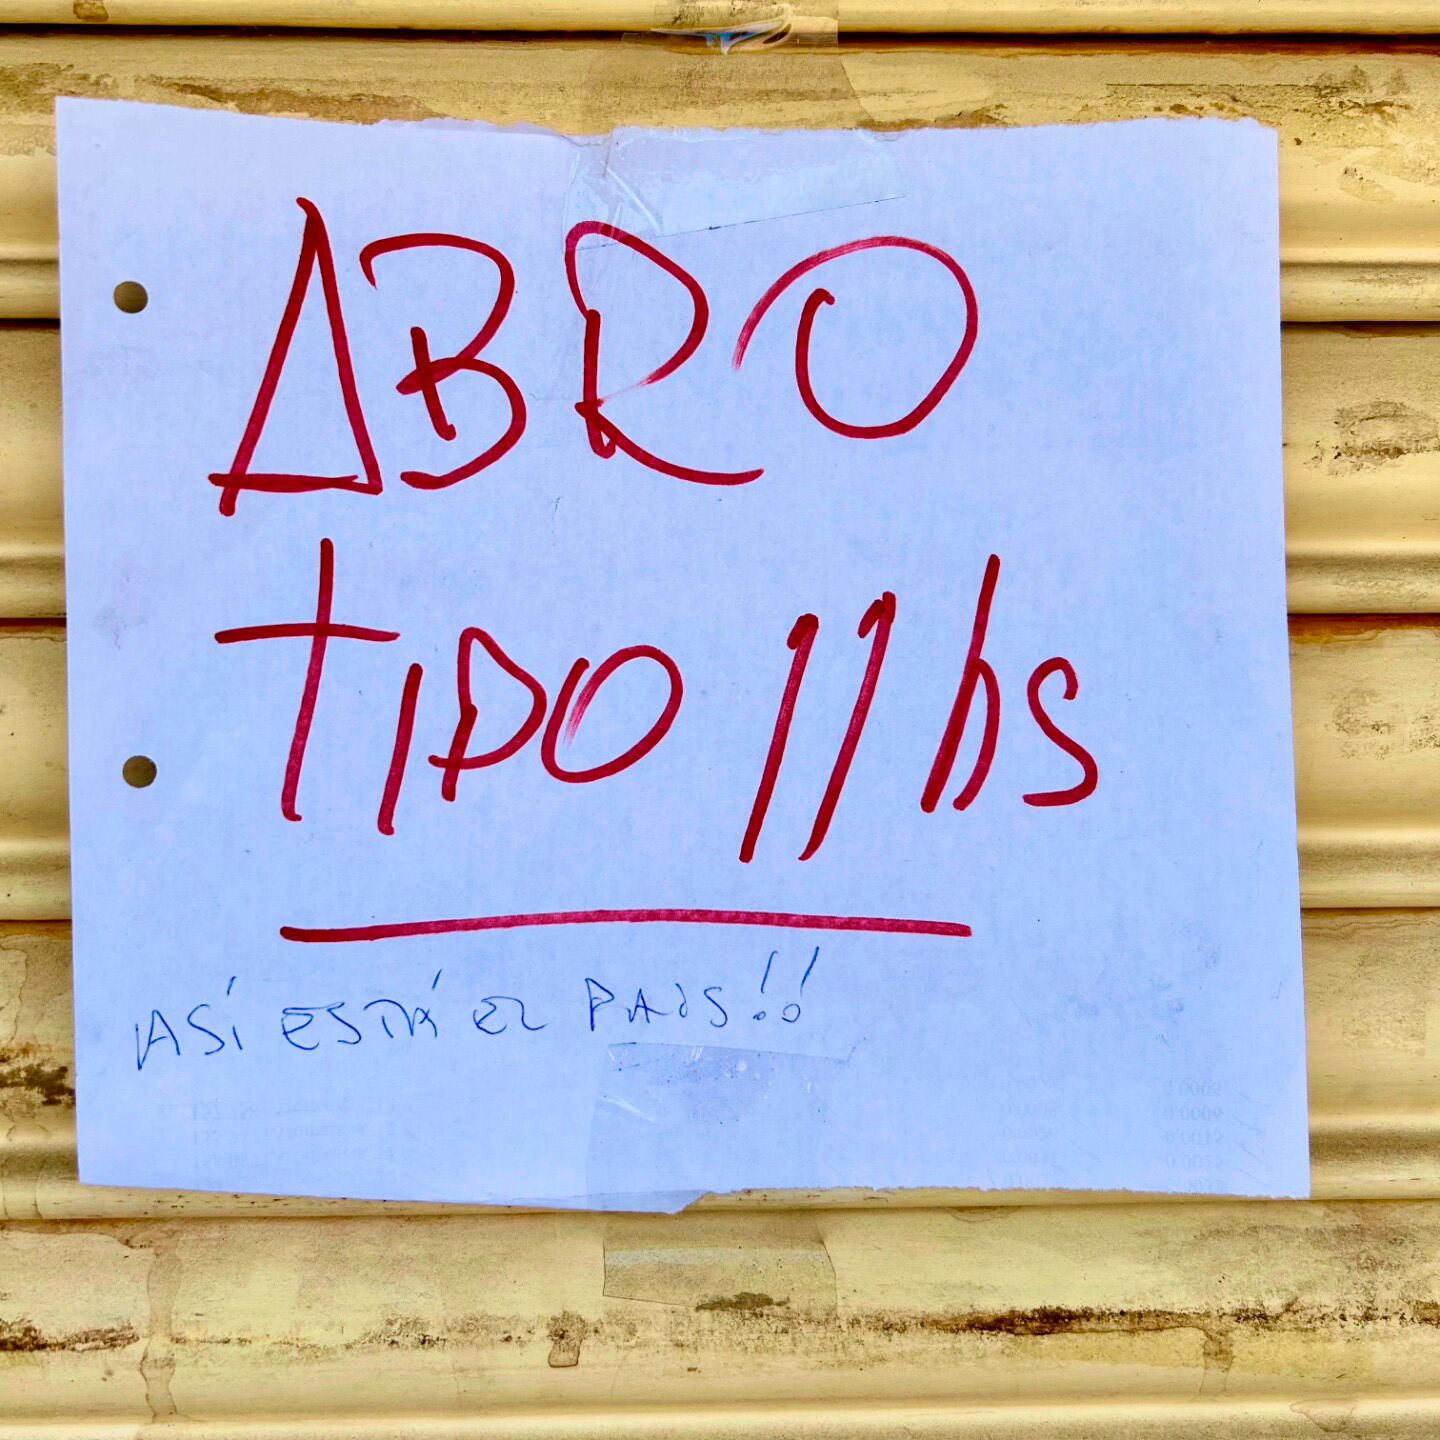 ABRO
TIPO 11 hs
ASÍ ESTÁ EL PAIS!!